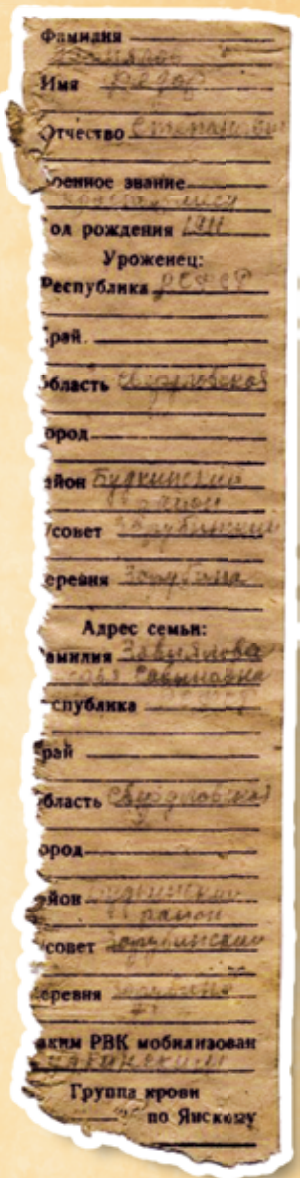 Фамилия
Имя Федор
Отчество Степанович
оенное звание
од рождения 1911
Уроженец:
Республика РСФСР
рай.
бласть Свердловской
ород
айон Буткинский
район
/совет Зарубинский
еревня Зарубина
Адрес семьи:
амилия Завьялова
Савишна
спублика
рай
бласть Свердловской
ород
айон Буткинский
район
совет Зорубинский
еревня Зорубина
аким РВК мобилизован
Группа крови
по Янскому